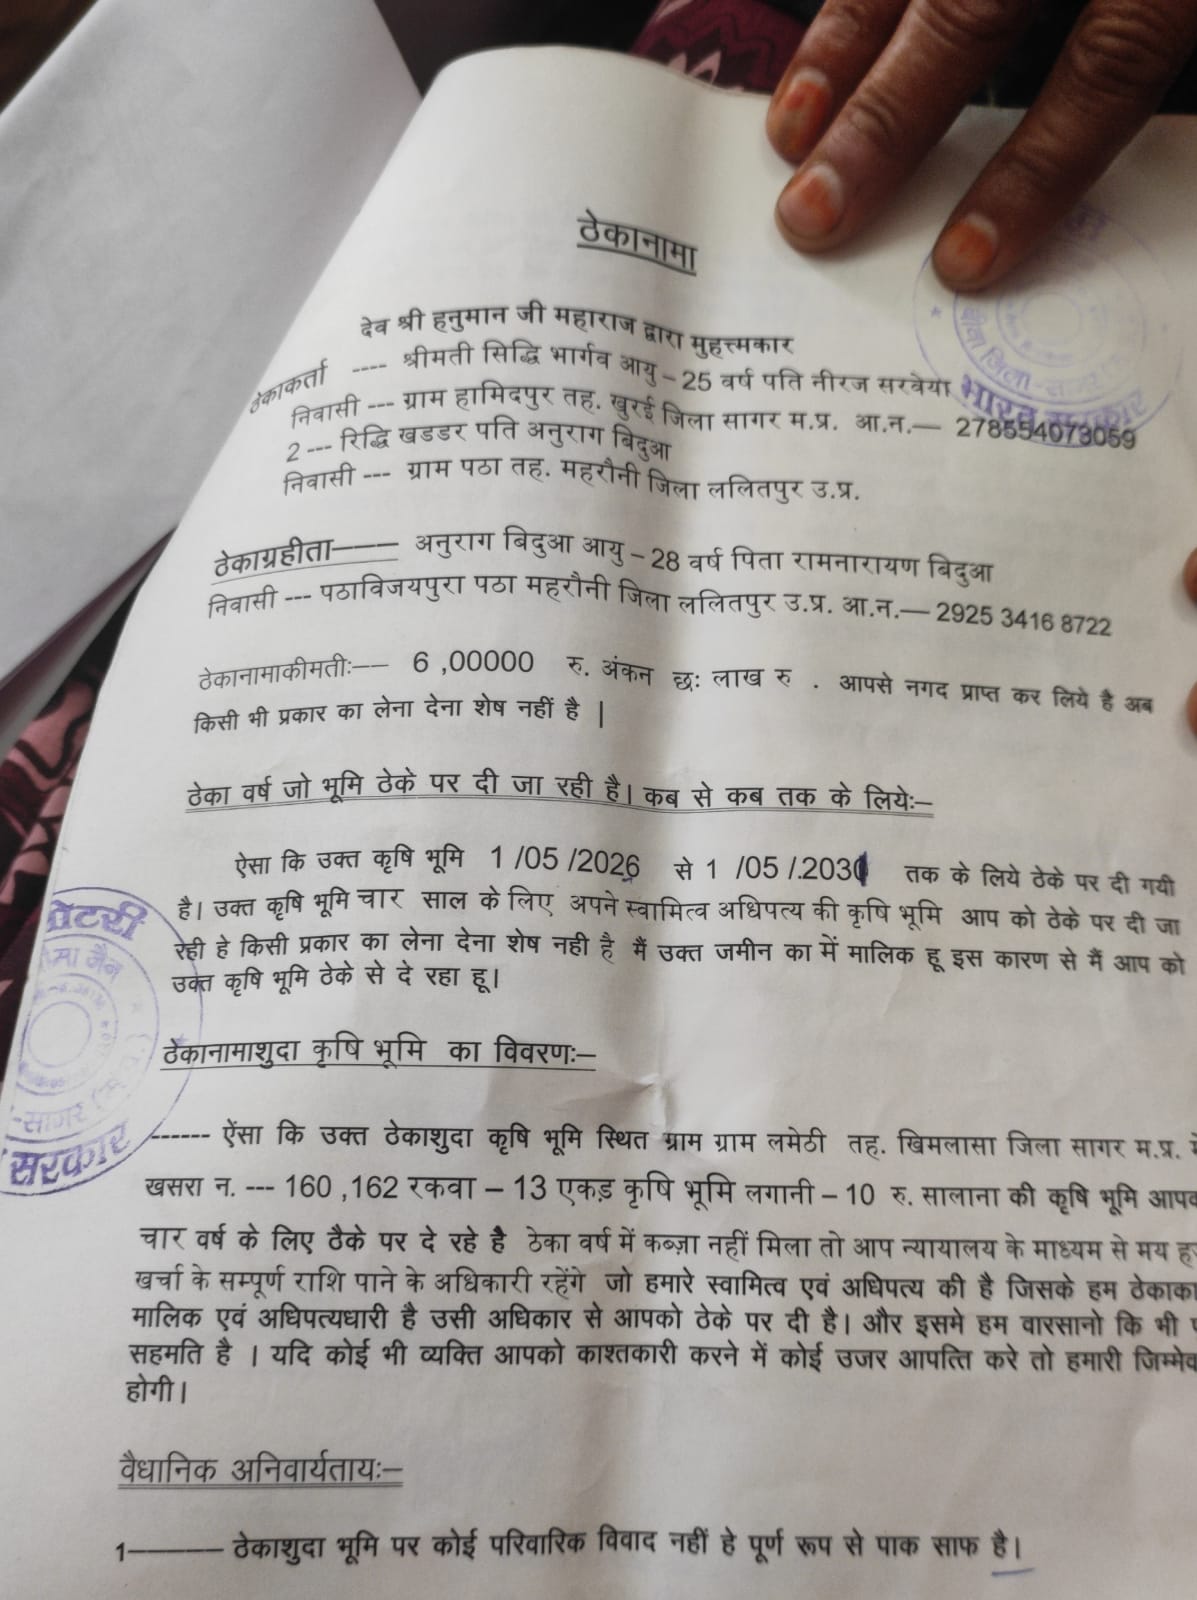 ठेकानामा
देव श्री हनुमान जी महाराज द्वारा मुहत्त्मकार
ठेकाकर्ता ---- श्रीमती सिद्धि भार्गव आयु – 25 वर्ष पति नीरज सरवेया
निवासी --- ग्राम हामिदपुर तह. खुरई जिला सागर म.प्र. आ.न.— 278554073059
2 --- रिद्धि खडडर पति अनुराग बिदुआ
निवासी --- ग्राम पठा तह. महरौनी जिला ललितपुर उ.प्र.
ठेकाग्रहीता—— अनुराग बिदुआ आयु – 28 वर्ष पिता रामनारायण बिदुआ
निवासी --- पठाविजयपुरा पठा महरौनी जिला ललितपुर उ.प्र. आ.न.— 2925 3416 8722
ठेकानामाकीमतीः— 6 ,00000 रु. अंकन छः लाख रु . आपसे नगद प्राप्त कर लिये है अब
किसी भी प्रकार का लेना देना शेष नहीं है |
ठेका वर्ष जो भूमि ठेके पर दी जा रही है। कब से कब तक के लियेः–
ऐसा कि उक्त कृषि भूमि 1 /05 /2026 से 1 /05 /.203 तक के लिये ठेके पर दी गयी
है। उक्त कृषि भूमि चार साल के लिए अपने स्वामित्व अधिपत्य की कृषि भूमि आप को ठेके पर दी जा
रही हे किसी प्रकार का लेना देना शेष नही है मैं उक्त जमीन का में मालिक हू इस कारण से मैं आप को
उक्त कृषि भूमि ठेके से दे रहा हू।
ठेकानामाशुदा कृषि भूमि का विवरणः–
------ ऐंसा कि उक्त ठेकाशुदा कृषि भूमि स्थित ग्राम ग्राम लमेठी तह. खिमलासा जिला सागर म.प्र.
खसरा न. --- 160 ,162 रकवा – 13 एकड़ कृषि भूमि लगानी – 10 रु. सालाना की कृषि भूमि
चार वर्ष के लिए ठैके पर दे रहे है ठेका वर्ष में कब्ज़ा नहीं मिला तो आप न्यायालय के माध्यम से मय
खर्चा के सम्पूर्ण राशि पाने के अधिकारी रहेंगे जो हमारे स्वामित्व एवं अधिपत्य की है जिसके हम
मालिक एवं अधिपत्यधारी है उसी अधिकार से आपको ठेके पर दी है। और इसमे हम वारसानो कि भी
सहमति है । यदि कोई भी व्यक्ति आपको काश्तकारी करने में कोई उजर आपत्ति करे तो हमारी
होगी।
वैधानिक अनिवार्यतायः–
1——— ठेकाशुदा भूमि पर कोई परिवारिक विवाद नहीं हे पूर्ण रूप से पाक साफ है।
भारत सरकार
सरकार